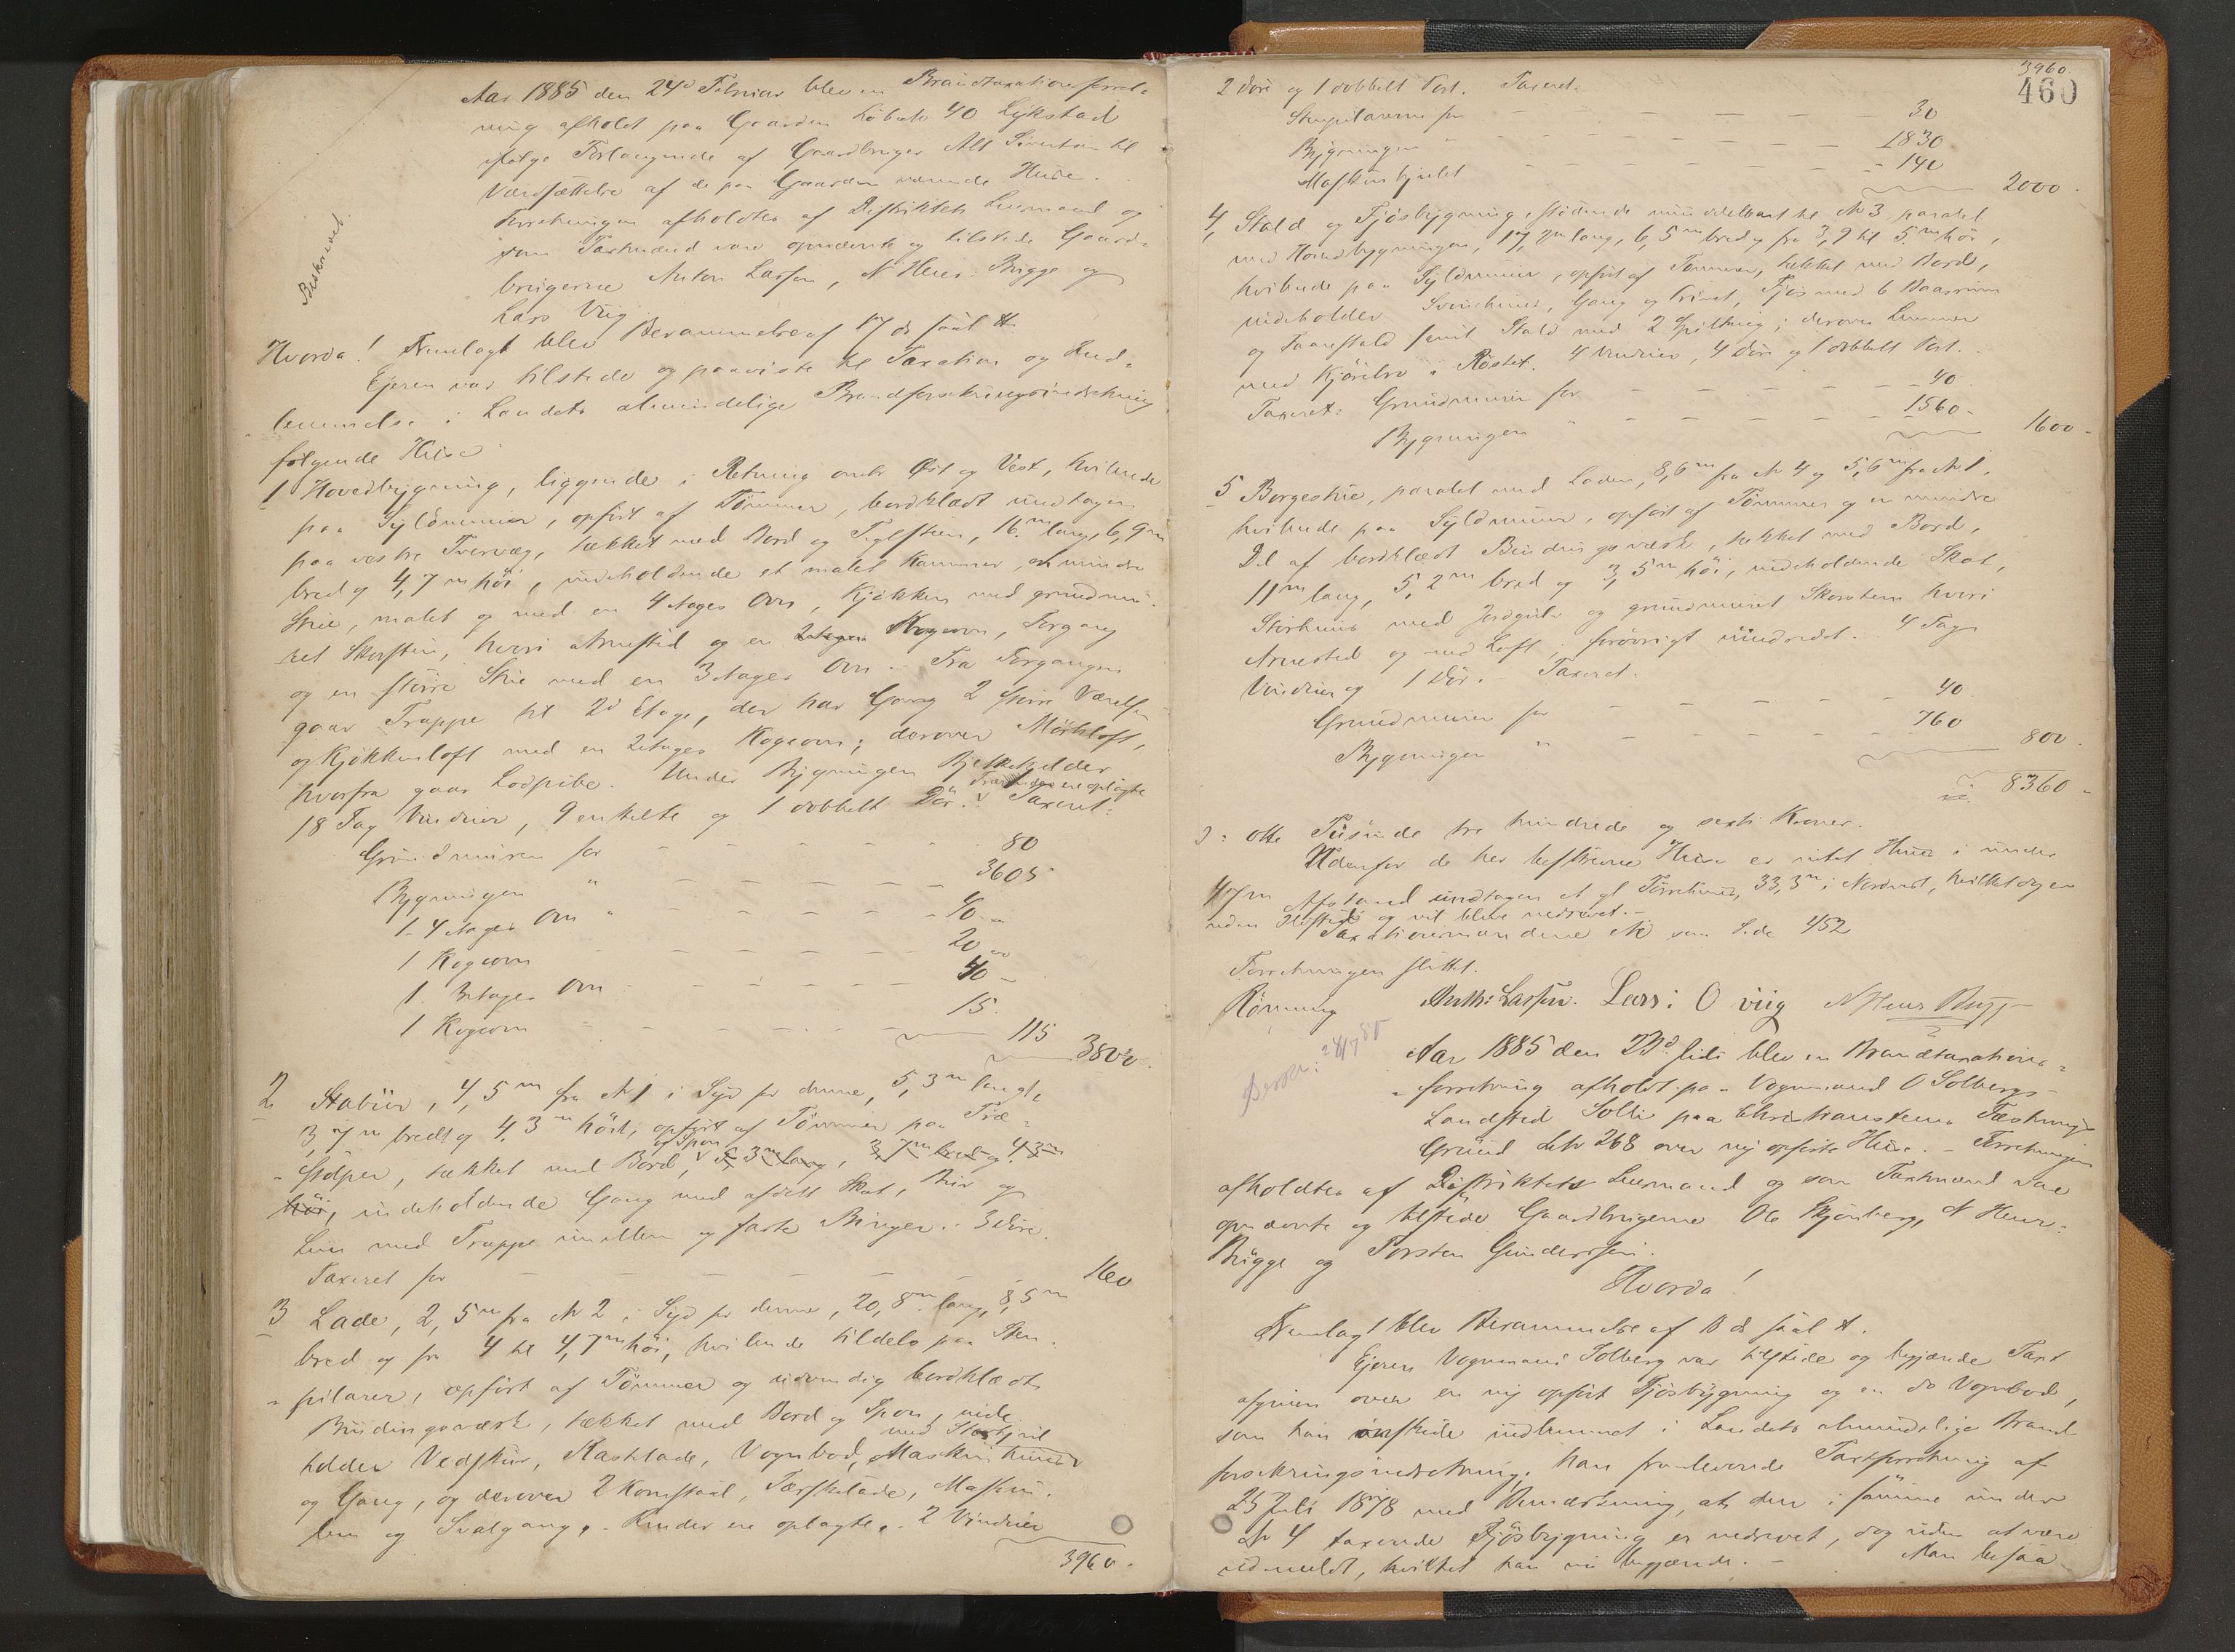 Aar 1885 den 24de Februar blev en Brandtaxationsforret-
ning afholdt paa Gaarden Löbede 40 Lykstad
ifölge Forlangende af Gaardbruger Alf Sivertsen til
Værdsættelse af de paa Gaarden værende Huse.
Forretningen afholdtes af Distriktets Lensmand og
som Taxtmænd vare opnævnte og tilstede Gaard-
brugerne Anton Larsen, N Heier Brygge og
Lars Viig
Beskrevet
Hvorda! Fremlagt blev Berammelse af 17 ds saal A
Ejeren var tilstede og paaviste til Taxation og Ind-
lemmelse i Landets almindelige Brandforsikringsindretning
fölgende Huse
1 Hovedbygning, liggende i Retning omtr Öst og Vest, hvilende
paa Syldmurer, opfört af Tömmer, bordklædt undtagen
paa vestre Tvervæg, tækket med Bord og Taglsten, 16m lang, 6,9m
bred og 4,7m höi, indeholdende et malet Kammer, en mindre
Stue, malet og med en 4 Etages Ovn, Kjökken med grundmu-
ret Skorsten, hvori Arnested og en 2etages Kogeovn, Forgang
og en större Stue med en 3etages Ovn. Fra Forgangen
gaar Trappe til 2d Etage, der har Gang 2 större Værelser
og Kjökkenloft med en 2etages Kogeovn; derover Mörkloft,
hvorfra gaar Lodpibe. Under Bygningen Bjelkekjelder
18 Fag Vinduer, 9 enkelte og 1 dobbelt Dör. Taxeret:
Grundmuren for 80
Bygningen " 3605
1. 4 Etages Ovn " 40
1 Kogeovn 20
1. 3etages Ovn 40
1 Kogeovn 15.
115
3800.
2 Stabur, 4,5m fra N 1 i Syd for denne, 5,3m langt,
3,7m bredt og 4,3m höit, opfört af Tömmer paa Træ-
stolper, tækket med Bord, og Spon 5,3m lang, 3,7m bred og 4,3m
höi, indeholdende Gang med afdelt Skot, Bur og
Lem med Trappe imellem og faste Binger. 3 Döre.
Taxeret for 160
3 Lade, 2,5m fra N 2 i Syd for denne, 20,8m lang, 8,5m
bred og fra 4 til 4,7m höi, hvilende tildels paa Sten-
pilarer, opfört af Tömmer og udvendig bordklædt
Bindingsværk, tækket med Bord og Spon, inde-
holder Vedskur, Kastelade, Vognbod, Maskinhuus med Stachjul
og Gang, og derover 2 Kornstaal, Tærskelade, Maskin-
lem og Svalgang. Kinder ere oplagte. 2 Vinduer
3960.
3960
460
2 Döre og 1 dobbelt Port. Taxeret:
Stenpilarerne for 30
Bygningen " 1830
Maskinhjulet 140
2000.
4, Stald og Fjösbygning, stödende umiddelbart til N 3 paralel
med Hovedbygningen, 17,7m lang, 6,5m bred og fra 3,9 til 5m höi,
hvilende paa Syldmurer, opfört af Tömmer, tækket med Bord,
indeholder Svinehuus, Gang og Privet, Fjös med 6 Baasrum
og Faarestald samt Stald med 2 Spiltaug; derover Lemmer
med Kjörebro i Röstet. 4 Vinduer, 4 Döre og 1 dobbelt Port.
Taxeret: Grundmurer for 40
Bygningen " 1560.
1600.
5 Borgestue, paralel med Laden, 8,6m fra N 4 og 5,6m fra N 1.
hvilende paa Syldmurer, opfört af Tömmer og en mindre
Del af bordklædt Bindingsværk, tækket med Bord,
11m lang, 5,2m bred og 3,5m höi, indeholdende Skot,
Störhuus med Jordgulv og grundmuret Skorsten hvori
Arnested og med Loft; forövrigt uindredet. 4 Fag
Vinduer og 1 Dör. Taxeret:
Grundmuren for 40
Bygningen " 760
800.
8360.
Otte Tusinde tre hundrede og sexti Kroner.
Udenfor de her beskrevne Huse er intet Huus i under
47m Afstand undtagen et gl Törrehuus, 33,3m i Nordvest, hvilket dog er
uden Ildsted og vil blive nedrevet.
Taxationsmændene etc som Side 452
Forretningen sluttet.
Rönning Anth: Larsen. Lars: O viig N Heier Brygge
Beskr: 24/7 85
Aar 1885 den 23d Juli blev en Brandtaxations-
forretning afholdt paa Vognmand O Solbergs
Landsted Solli paa Christiansteens Fæstnings
Grund L No 268 over ny opförte Huse. Forretningen
afholdtes af Distriktets Lensmand og som Taxtmænd vare
opnævnte og tilstede Gaardbrugerne Ole Skjönberg, N Heier
Brygge og Torsten Gunderssen.
Hvorda!
Fremlagt blev Berammelse af 13 ds saal A.
Ejeren Vognmand Solberg var tilstede og begjærede Taxt
afgiven over en ny opfört Fjösbygning og en do Vognbod,
som han önskede indlemmet i Landets almindelige Brand-
forsikringsindretning. Han fremleverede Taxtforretning af
25 Juli 1878 med Bemærkning, at den i samme under
No 4 taxerede Fjösbygning er nedrevet, dog uden at være
udmeldt, hvilket han nu begjærede. Man besaa